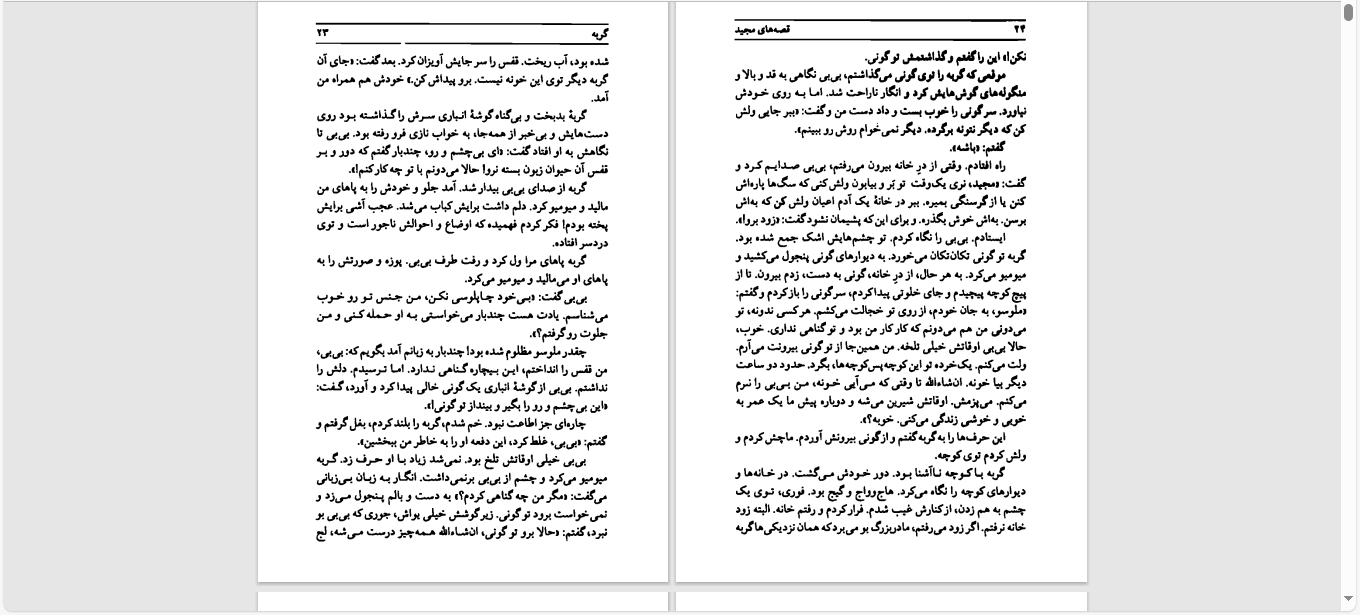 گربه
۲۳
شده بود، آب ریخت. قفس را سر جایش آویزان کرد. بعد گفت: «جای آن
گربه دیگر توی این خونه نیست. برو پیداش کن.» خودش هم همراه من
آمد.
گربهٔ بدبخت و بی‌گناه گوشهٔ انباری سرش را گذاشته بود روی
دست‌هایش و بی‌خبر از همه‌جا، به خواب نازی فرو رفته بود. بی‌بی تا
نگاهش به او افتاد گفت: «ای بی‌چشم و رو، چندبار گفتم که دور و بر
قفس آن حیوان زبون بسته نرو! حالا می‌دونم با تو چه کار کنم!».
گربه از صدای بی‌بی بیدار شد. آمد جلو و خودش را به پاهای من
مالید و میومیو کرد. دلم داشت برایش کباب می‌شد. عجب آشی برایش
پخته بودم! فکر کردم فهمیده که اوضاع و احوالش ناجور است و توی
دردسر افتاده.
گربه پاهای مرا ول کرد و رفت طرف بی‌بی. پوزه و صورتش را به
پاهای او می‌مالید و میومیو می‌کرد.
بی‌بی گفت: «بی‌خود چاپلوسی نکن، من جنس تو رو خوب
می‌شناسم. یادت هست چندبار می‌خواستی به او حمله کنی و من
جلوت رو گرفتم؟».
چقدر ملوسو مظلوم شده بود! چندبار به زبانم آمد بگویم که: بی‌بی،
من قفس را انداختم، این بیچاره گناهی ندارد. اما ترسیدم. دلش را
نداشتم. بی‌بی از گوشهٔ انباری یک گونی خالی پیدا کرد و آورد، گفت:
«این بی‌چشم و رو را بگیر و بینداز تو گونی!».
چاره‌ای جز اطاعت نبود. خم شدم، گربه را بلند کردم، بغل گرفتم و
گفتم: «بی‌بی، غلط کرد، این دفعه او را به خاطر من ببخشین».
بی‌بی خیلی اوقاتش تلخ بود. نمی‌شد زیاد با او حرف زد. گربه
میومیو می‌کرد و چشم از بی‌بی برنمی‌داشت. انگار به زبان بی‌زبانی
می‌گفت: «مگر من چه گناهی کردم؟» به دست و بالم پنجول می‌زد و
نمی‌خواست برود تو گونی. زیر گوشش خیلی یواش، جوری که بی‌بی بو
نبرد، گفتم: «حالا برو تو گونی، ان‌شاءالله همه‌چیز درست می‌شه، لج
۲۴
قصه‌های مجید
نکن!» این را گفتم و گذاشتمش تو گونی.
موقعی که گربه را توی گونی می‌گذاشتم، بی‌بی نگاهی به قد و بالا و
منگوله‌های گوش‌هایش کرد و انگار ناراحت شد. اما به روی خودش
نیاورد. سر گونی را خوب بست و داد دست من و گفت: «ببر جایی ولش
کن که دیگر نتونه برگرده. دیگر نمی‌خوام روش رو ببینم».
گفتم: «باشه».
راه افتادم. وقتی از درِ خانه بیرون می‌رفتم، بی‌بی صدایم کرد و
گفت: «مجید، نری یک‌وقت تو بّر و بیابون ولش کنی که سگ‌ها پاره‌اش
کنن یا از گرسنگی بمیره. ببر در خانهٔ یک آدم اعیان ولش کن که به‌اش
برسن. به‌اش خوش بگذره. و برای این که پشیمان نشود گفت: «زود برو!».
ایستادم. بی‌بی را نگاه کردم. تو چشم‌هایش اشک جمع شده بود.
گربه تو گونی تکان‌تکان می‌خورد. به دیوارهای گونی پنجول می‌کشید و
میومیو می‌کرد. به هر حال، از درِ خانه، گونی به دست، زدم بیرون. تا از
پیچ کوچه پیچیدم و جای خلوتی پیدا کردم، سر گونی را باز کردم و گفتم:
«ملوسو، به جان خودم، از روی تو خجالت می‌کشم. هر کسی ندونه، تو
می‌دونی من هم می‌دونم که کار کار من بود و تو گناهی نداری. خوب،
حالا بی‌بی اوقاتش خیلی تلخه. من همین‌جا از تو گونی بیرونت می‌آرم.
ولت می‌کنم. یک‌خرده تو این کوچه‌پس‌کوچه‌ها، بگرد. حدود دو ساعت
دیگر بیا خونه. ان‌شاءالله تا وقتی که می‌آیی خونه، من بی‌بی را نرم
می‌کنم. می‌پزمش. اوقاتش شیرین می‌شه و دوباره پیش ما یک عمر به
خوبی و خوشی زندگی می‌کنی. خوبه؟».
این حرف‌ها را به گربه گفتم و از گونی بیرونش آوردم. ماچش کردم و
ولش کردم توی کوچه.
گربه با کوچه ناآشنا بود. دور خودش می‌گشت. در خانه‌ها و
دیوارهای کوچه را نگاه می‌کرد. هاج‌وواج و گیج بود. فوری، توی یک
چشم به هم زدن، از کنارش غیب شدم. فرار کردم و رفتم خانه. البته زود
خانه نرفتم. اگر زود می‌رفتم، مادربزرگ بو می‌برد که همان نزدیکی‌ها گربه